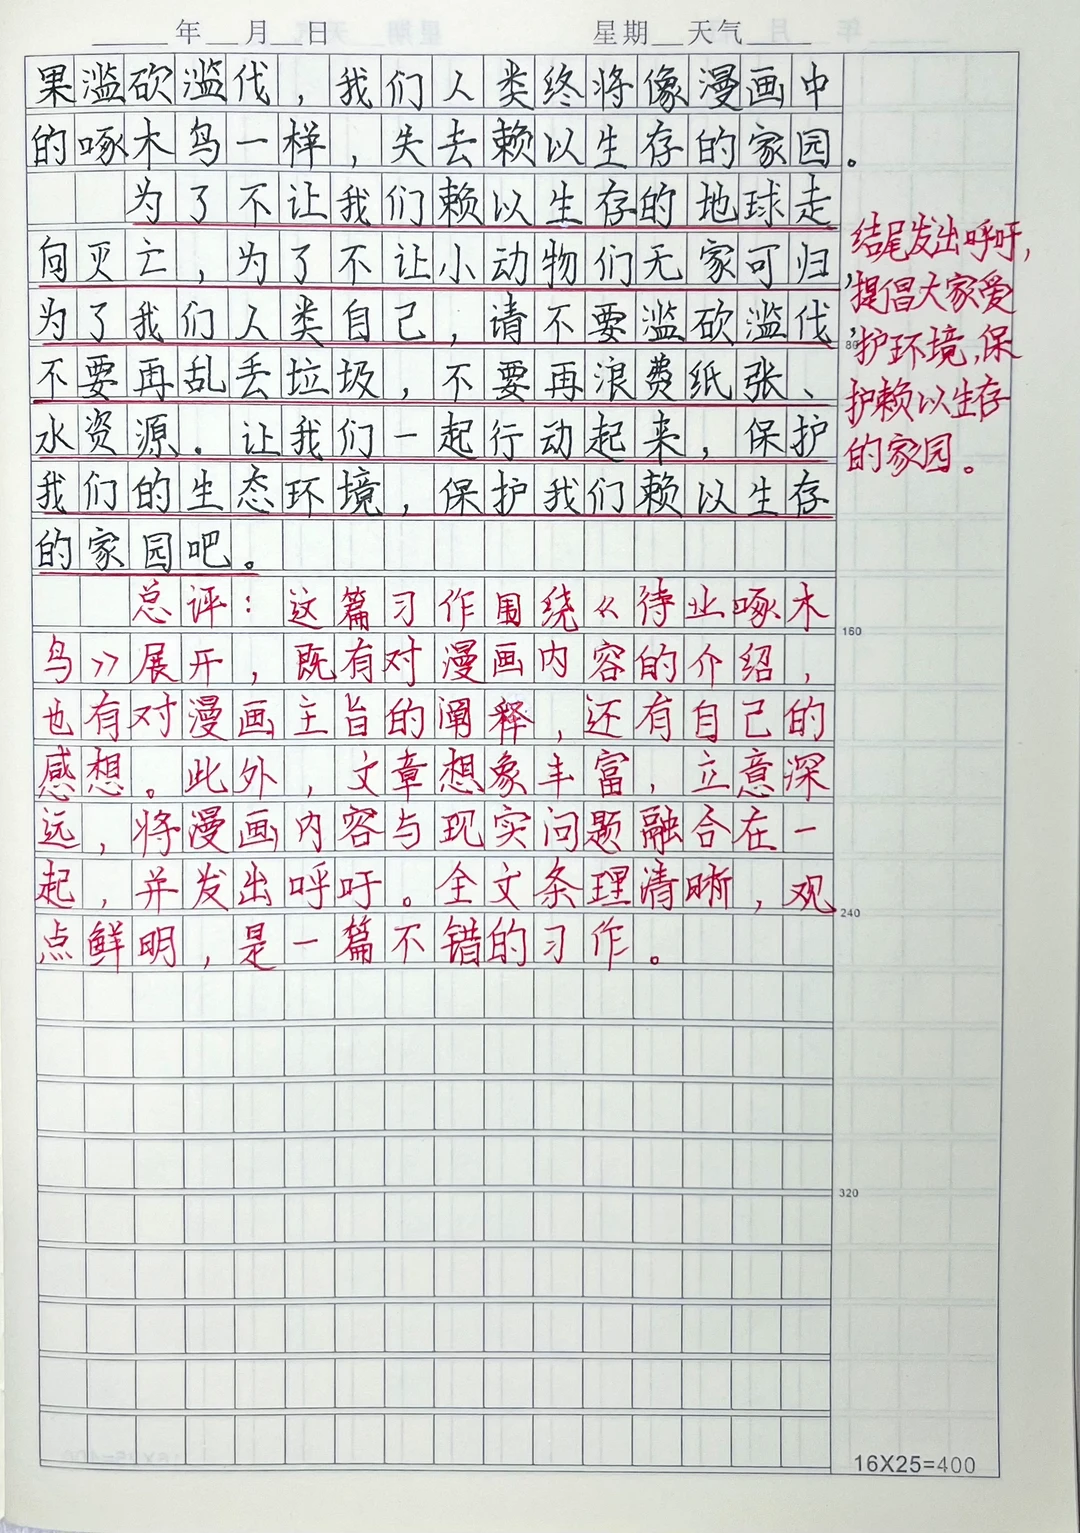 年 月 日 星期 天气
果滥砍滥伐，我们人类终将像漫画中
的啄木鸟一样，失去赖以生存的家园。
为了不让我们赖以生存的地球走
向灭亡，为了不让小动物们无家可归，
为了我们人类自己，请不要滥砍滥伐，
80
不要再乱丢垃圾，不要再浪费纸张、
水资源。让我们一起行动起来，保护
我们的生态环境，保护我们赖以生存
的家园吧。
结尾发出呼吁，
提倡大家爱
护环境，保
护赖以生存
的家园。
总评：这篇习作围绕《待业啄木
160
鸟》展开，既有对漫画内容的介绍，
也有对漫画主旨的阐释，还有自己的
感想。此外，文章想象丰富，立意深
远，将漫画内容与现实问题融合在一
起，并发出呼吁。全文条理清晰，观
240
点鲜明，是一篇不错的习作。
320
16X25=400